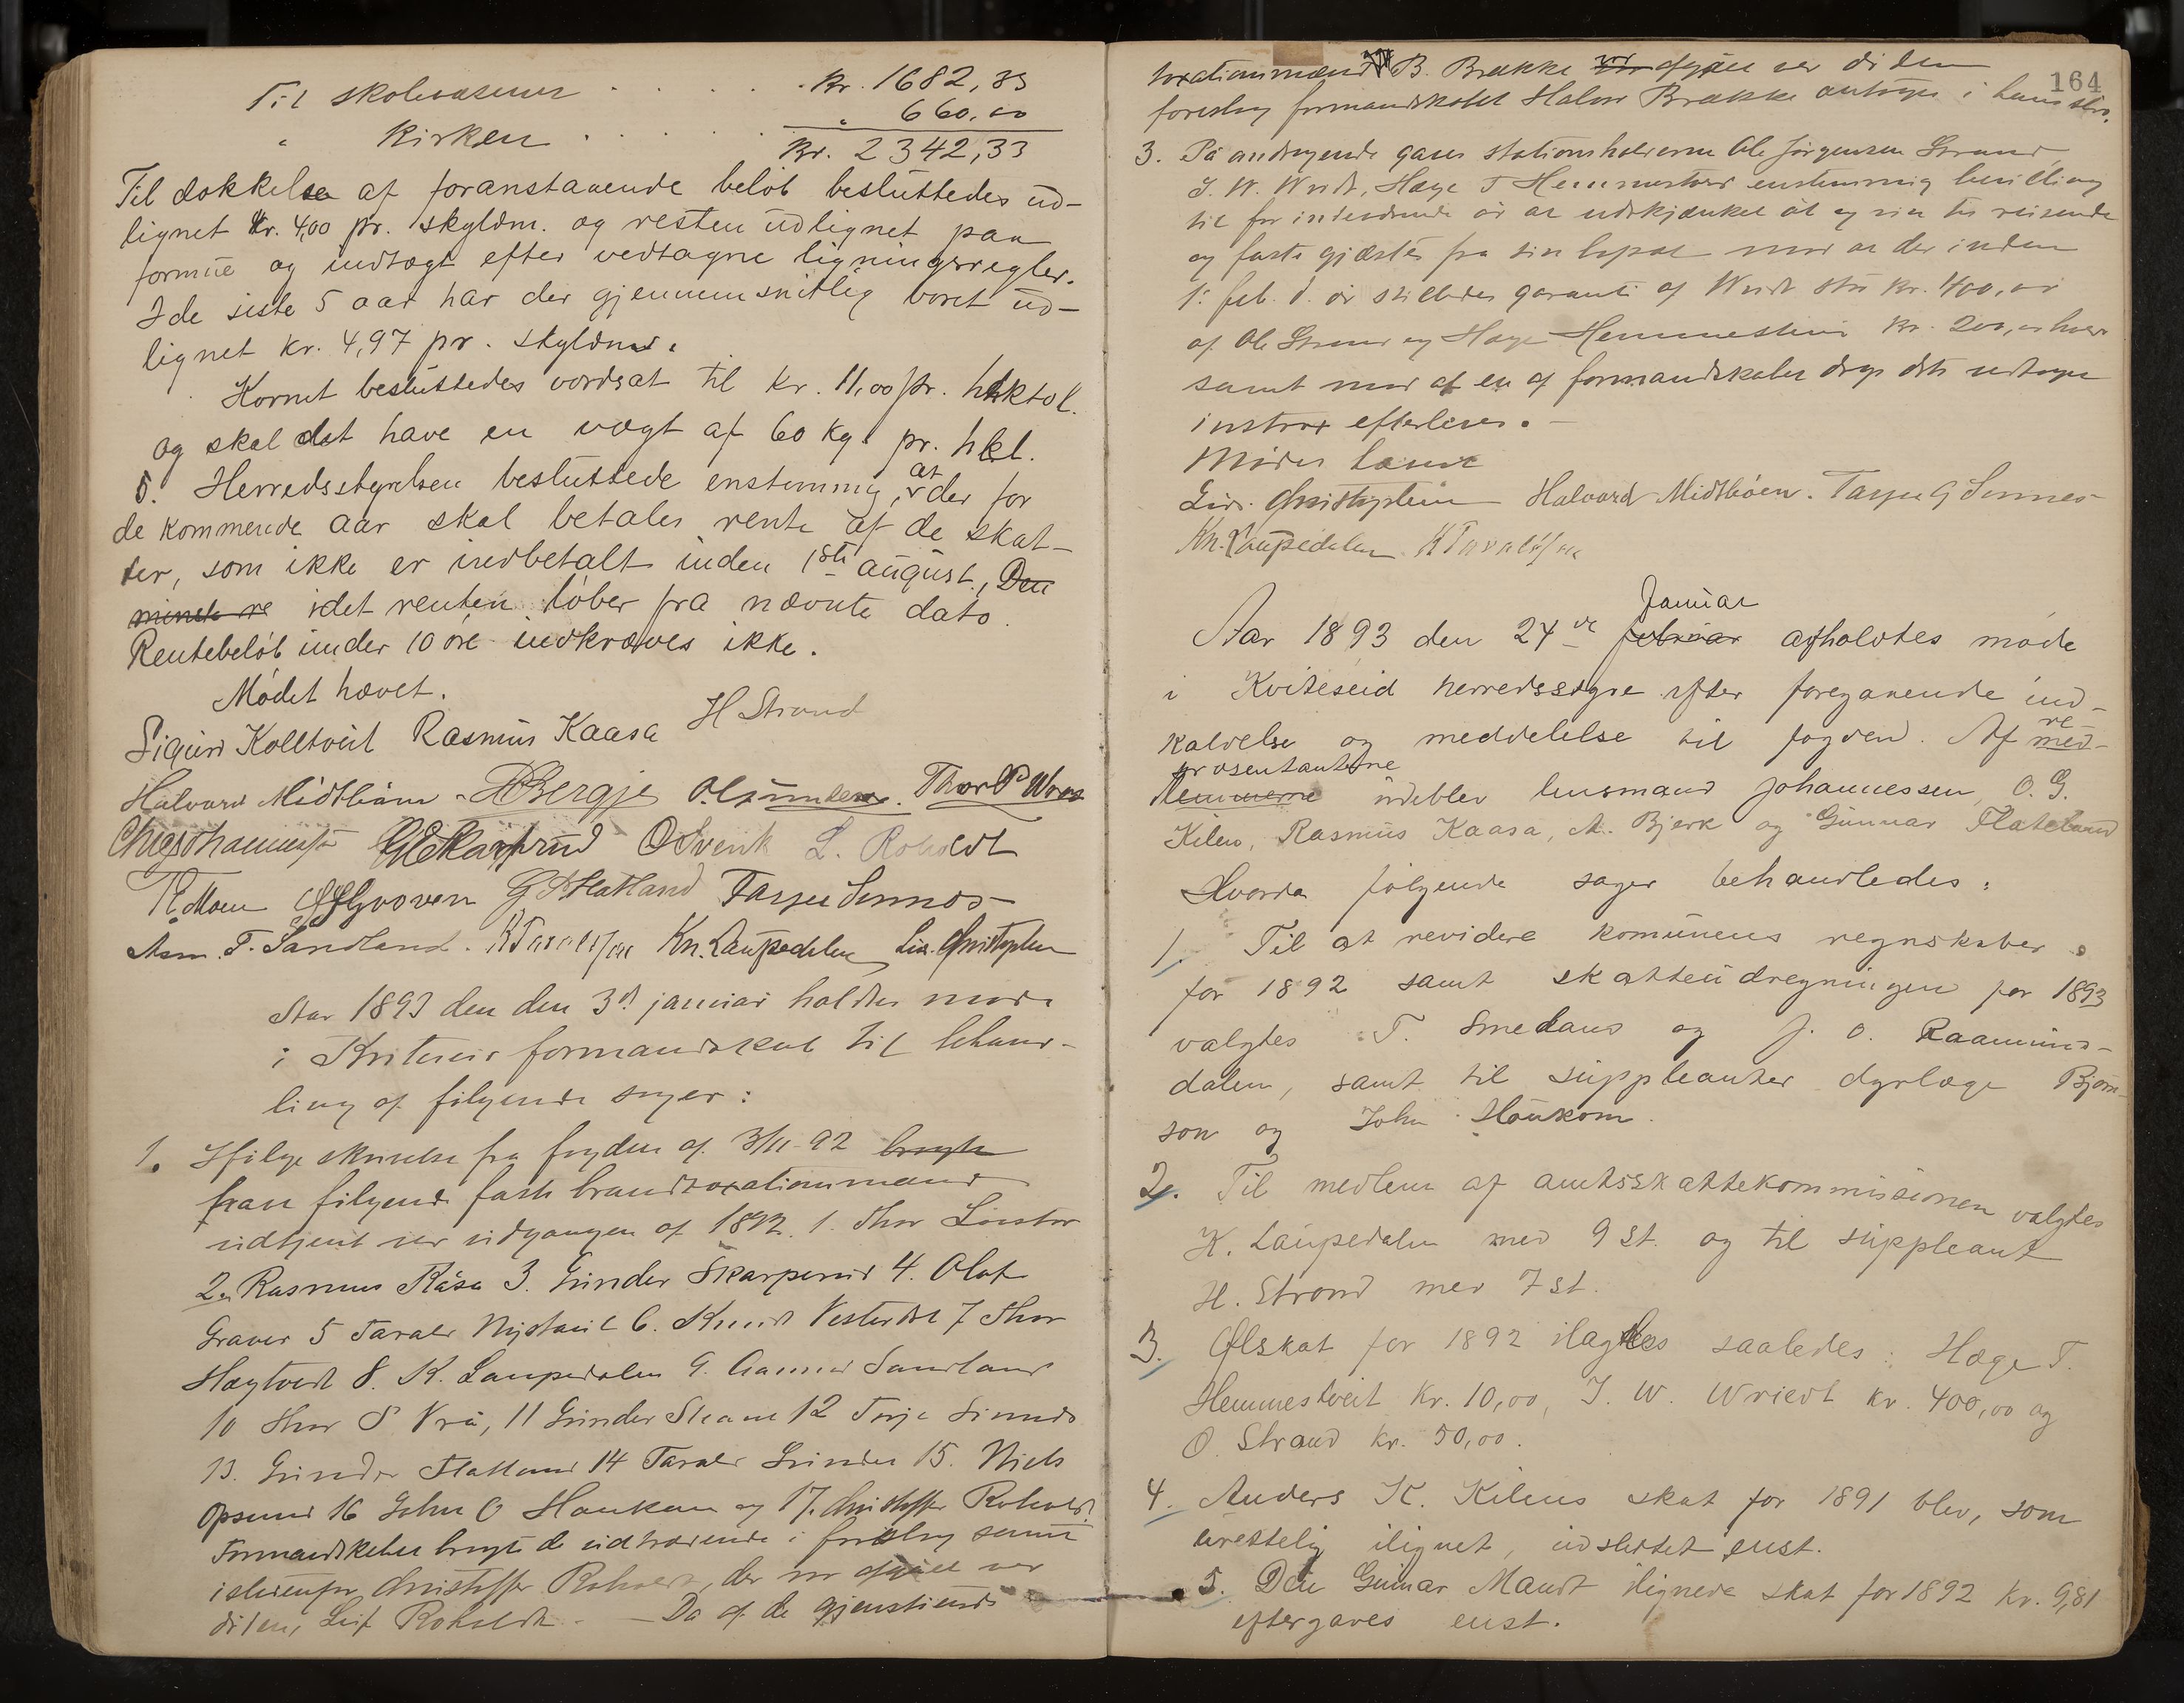 Til skolevæsenet . . . . Kr. 1682,33
" Kirken . . . . . " 660,00
Kr. 2342,33
Til dækkelse af foranstaaende beløb besluttedes ud-
lignet Kr. 4,00 pr. skyldm. og resten udlignet paa
formue og indtægt efter vedtagne ligningsregler.
I de siste 5 aar har der gjennemsnitlig været ud-
lignet kr. 4,97 pr. skyldmk.
Kornet besluttedes værdsat til kr. 11,00 pr. hektol.
og skal det have en vægt af 60 kg. pr. hkl.
5. Herredsstyrelsen besluttede enstemmig, at der for
de kommende aar skal betales rente af de skat-
ter, som ikke er indbetalt inden 1ste august, Den
mindste idet renten løber fra nævnte dato.
Rentebeløb under 10 øre indkræves ikke.
Mødet hævet.
Sigurd Kolltveit Rasmus Kaasa H Strand
Halvard Midtbøen HBergje O. Thor P Wraa
G Skarprud O Svenk L. Roholdt
T. Moen Grover G Flatland Tarjei Sinnes
Asm. T. Sandland. K Kn. Laupedalen Liv. Christophersen
Aar 1893 den den 3d januar holdtes møde
i Kviteseid formandskab til behand-
ling af følgende sager:
1. Ifølge skrivelse fra fogden af 3/11-92
har følgende faste brandtaxationsmænd
udtjent ved udgangen af 1892. 1. Thor
2. Rasmus Kåsa 3. Gunder Skarperud 4. Olaf
Graver 5 Tarald Nystaul 6. Knud Vesterdal 7 Thor
Hægtvedt 8. K. Laupedalen 9. Aamund Sandland
10 Thor S Vrå, 11 Gunder Skaane 12 Tarje Sinnes
13. Gunder Flatland 14 Tarald Grinder 15. Niels
Opsund 16 John O Haukom og 17. Christoffer Roholdt
Formandskabet bragte de udtrædende i forslag samt
istedenfor Christoffer Roholdt, der var afgået ved
døden, Leif Roholdt. — Da af de gjenstående
164
taxationsmænd B. Brække var afgået ved døden
foreslog formandskabet Halvor Brække antaget i hans sted.
3. På andragende gaves stationsholderne Ole Jørgensen Strand,
J. W. Wridt, Hæge T Hemmestveit enstemmig bevilling
til for indeværende år at udskjænke øl og vin til reisende
og faste gjæster fra sin bopæl mod at der inden
1. feb. d. år stilledes garanti af Wridt stor kr. 400,00
af Ole Strand og Hæge Hemmestveit kr. 200,00 hver
samt mod at en af formandskabet d.. vedtagne
instrux efterleves. —
Mødet hævet
Liv. Christophersen Halvard Midtbøen. Tarjei G Sinnes
Kn. Laupedalen K
Januar
Aar 1893 den 24de februar afholdtes møde
i Kviteseid herredsstyre efter foregaaende ind-
kaldelse og meddelelse til fogden. Af med- re-
præsentanterne
lemmerne udeblev lensmand Johannessen, O. G.
Kilen, Rasmus Kaasa, A. Bjerk og Gunnar Flateland
Hvorda følgende sager behandledes:
1. Til at revidere komunens regnskaber
for 1892 samt skatteudregningen for 1893
valgtes T. Smedaas og J. O. Raamunds-
dalen, samt til suppleanter dyrlæge Bjørn-
son og John Haukom.
2. Til medlem af amtsskattekommissionen valgtes
K. Laupedalen med 9 st. og til suppleant
H. Strand med 7 st.
3. Ølskat for 1892 ilagdes saaledes: Hæge T.
Hemmestveit kr. 10,00, J. W. Wriedt kr. 400,00 og
O. Strand kr. 50,00.
4. Anders K. Kilens skat for 1891 blev, som
urettelig ilignet, udslettet enst.
5. Den Gunnar Mandt ilignede skat for 1892 kr. 9,81
eftergaves enst.